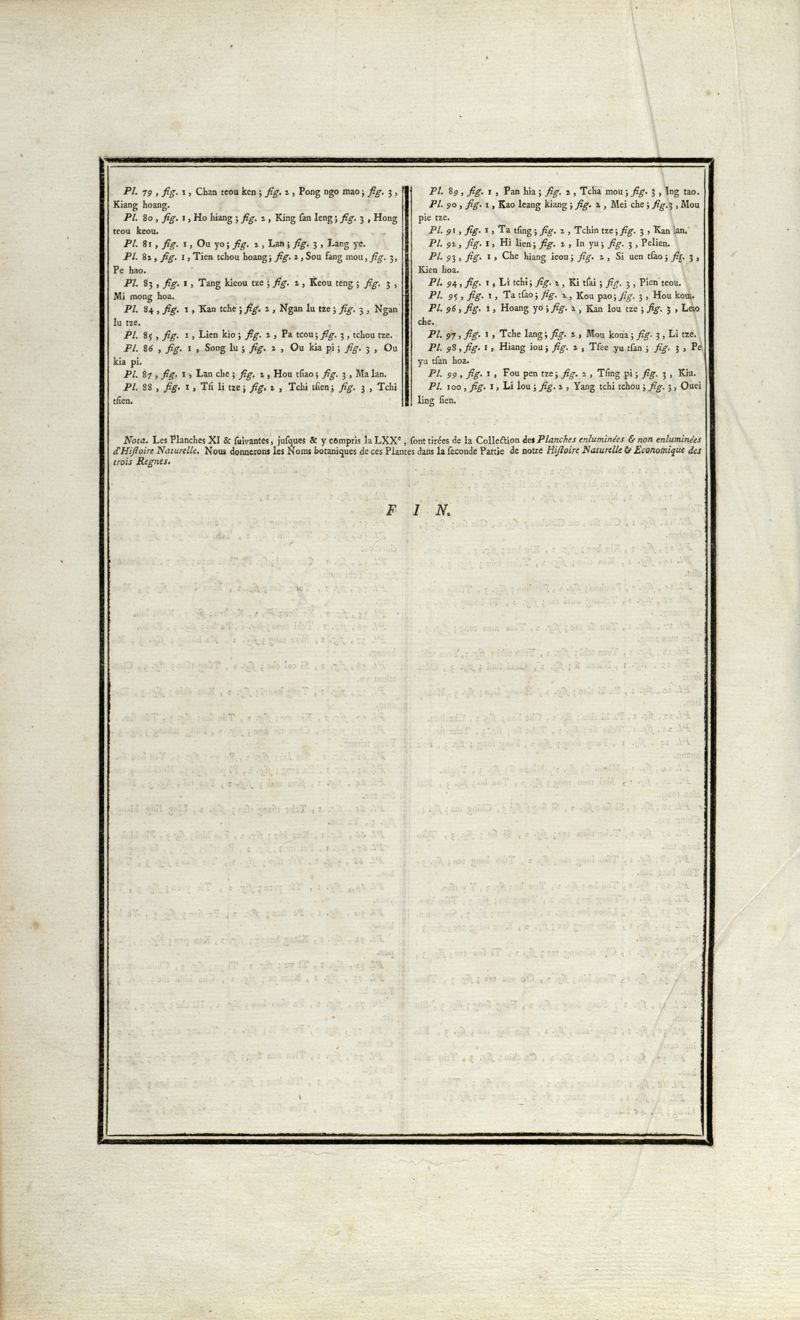 Pl. 79, fig. 1, Chan teou ken; fig. 2, Pong ngo mao; fig. 3,
Kiang hoang.
Pl. 80, fig. 1, Ho hiang; fig. 2, King ſan leng; fig. 3, Hong
teou keou.
Pl. 81, fig. 1, Ou yo; fig. 2, Lan; fig. 3, Lang ye.
Pl. 82, fig. 1, Tien tchou hoang; fig. 2, Sou ſang mou, fig. 3,
Pe hao.
Pl. 83, fig. 1, Tang kieou tze; fig. 2, Keou teng; fig. 3,
Mi mong hoa.
Pl. 84, fig. 1, Kan tche; fig. 2, Ngan lu tze; fig. 3, Ngan
lu tze.
Pl. 85, fig. 1, Lien kio; fig. 2, Pa teou; fig. 3, tchou tze.
Pl. 86, fig. 1, Song lu; fig. 2, Ou kia pi; fig. 3, Ou
kia pi.
Pl. 87, fig. 1, Lan che; fig. 2, Hou tſiao; fig. 3, Ma lan.
Pl. 88, fig. 1, Tſi li tze; fig. 2, Tchi tſien; fig. 3, Tchi
tſien.
Pl. 89, fig. 1, Pan hia; fig. 2, Tcha mou; fig. 3, Ing tao.
Pl. 90, fig. 1, Kao leang kiang; fig. 2, Mei che; fig. 3, Mou
pie tze.
Pl. 91, fig. 1, Ta tſing; fig. 2, Tchin tze; fig. 3, Kan lan.
Pl. 92, fig. 1, Hi lien; fig. 2, In yu; fig. 3, Pelien.
Pl. 93, fig. 1, Che hiang ieou; fig. 2, Si uen tſao; fig. 3,
Kien hoa.
Pl. 94, fig. 1, Li tchi; fig. 2, Ki tſai; fig. 3, Pien teou.
Pl. 95, fig. 1, Ta tſao; fig. 2, Kou pao; fig. 3, Hou kou.
Pl. 96, fig. 1, Hoang yo; fig. 2, Kan lou tze; fig. 3,
che.
Pl. 97, fig. 1, Tche lang; fig. 2, Mou koua; fig. 3, Li tze.
Pl. 98, fig. 1, Hiang iou; fig. 2, Tſee yu tſan; fig. 3, Pe
yu tſan hoa.
Pl. 99, fig. 1, Fou pen tze; fig. 2, Tſing pi; fig. 3, Kiu.
Pl. 100, fig. 1, Li lou; fig. 2, Yang tchi tchou; fig. 3, Ouei
ling ſien.
Nota. Les Planches XI & ſuivantes, juſques & y compris la LXXe, ſont tirées de la Collection des Planches enluminées & non enluminées
d'Hiſtoire Naturelle. Nous donnerons les Noms botaniques de ces Plantes dans la ſeconde Partie de notre Hiſtoire Naturelle & Economique des
trois Regnes.
F I N.